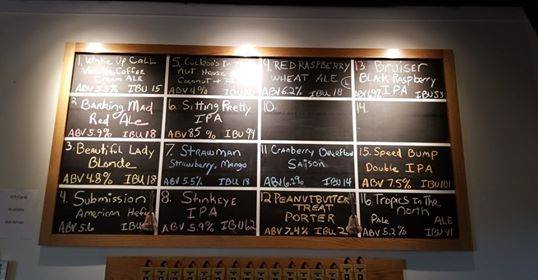 1. Wake Up Call
Vanilla Coffee
Cream ALE
ABV 5.5% IBU 15
2. Barking Mad
Red Ale
ABV 5.9% IBU 18
3. Beautiful Lady
Blonde
ABV 4.8% IBU 18
4. Submission
American Hefe
ABV 5.6 IBU
5. Cuckoo's In The
Nut House
Coconut
ABV
6. Sitting Pretty
IPA
ABV 85 % IBU 94
7. STRAWMAN
Strawberry, Mango
ABV 5.5% IBU 18
8. Stinkeye
IPA
ABV 5.9% IBU 62
9. RED RASPBERRY
WHEAT ALE
ABV 6.2% IBU 18
10.
11. Cranberry
Saison
ABV 6.2% IBU 14
12 PEANUTBUTTER
TREAT
PORTER
ABV 7.4% IBU
13. Bruiser
Black Raspberry
IPA
14.
15. Speed Bump
Double IPA
ABV 7.5% IBU 101
16 Tropics In The
north
Pale ALE
ABV 5.2% IBU 41